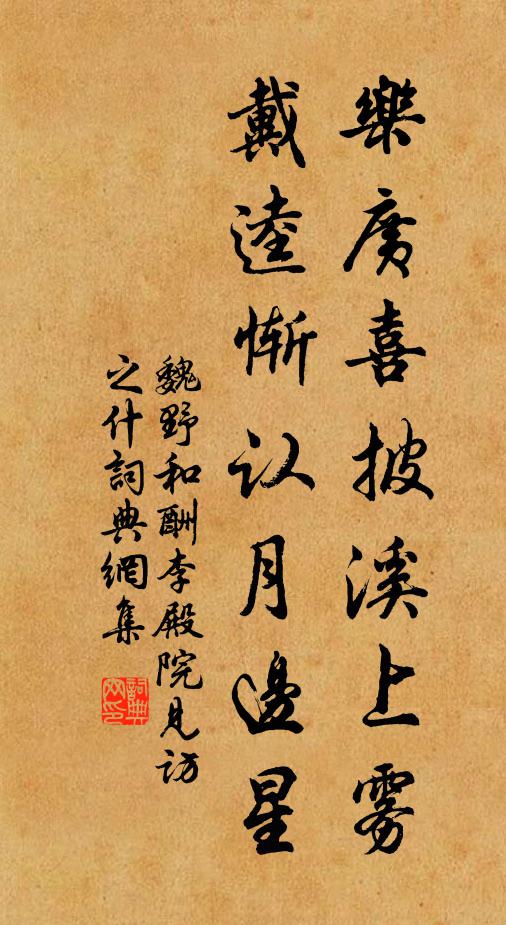 樂廣喜披溪上雾
戴逵惭认月邊星
魏野和酬李殿院見访
之什詞典網集
詞典网印